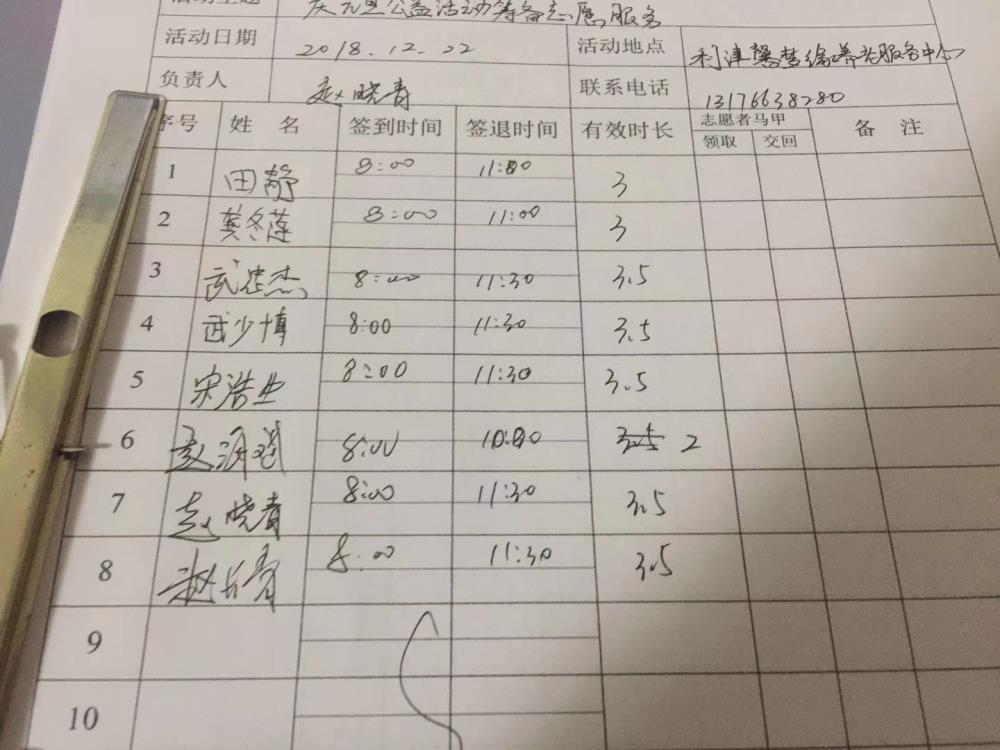 活动主题 庆元旦公益活动筹备志愿服务
活动日期 2018.12.22 活动地点 利津馨梦缘养老服务中心
负责人 赵晓青 联系电话 13176638280
序号 姓 名 签到时间 签退时间 有效时长 志愿者马甲 备 注
领取 交回
1 田静 8:00 11:00 3
2 龚冬莲 8:00 11:00 3
3 武忠杰 8:00 11:30 3.5
4 武少博 8:00 11:30 3.5
5 宋浩生 8:00 11:30 3.5
6 赵 8:00 10:00 3.5 2
7 赵晓青 8:00 11:30 3.5
8 赵长青 8:00 11:30 3.5
9
10